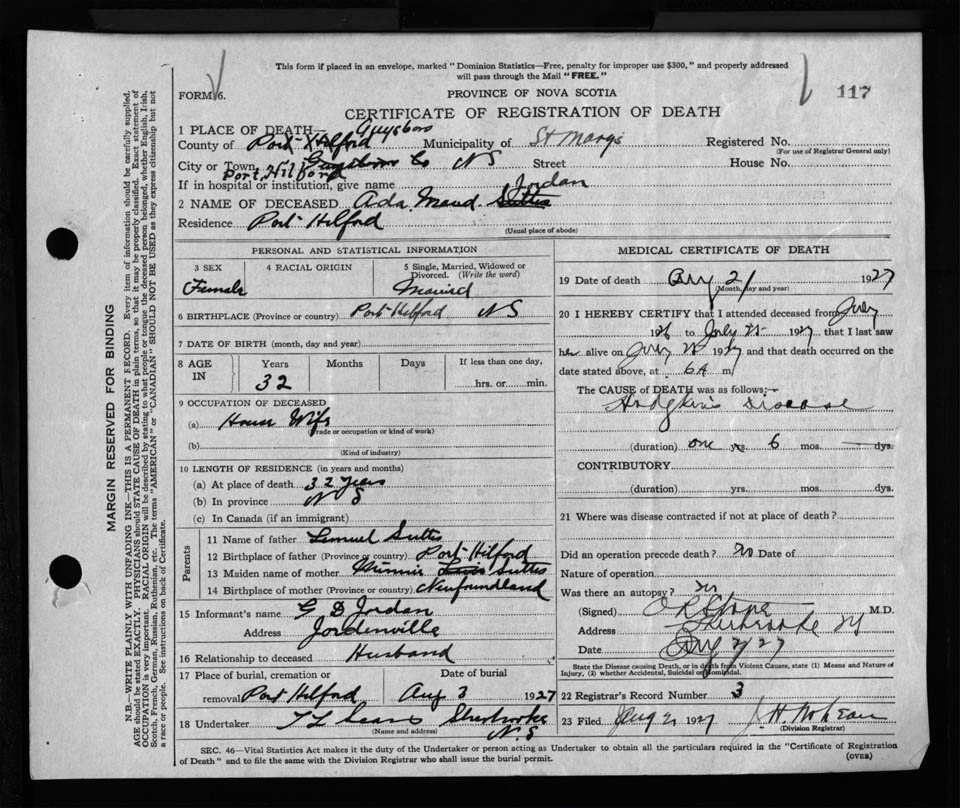 This form if placed in an envelope, marked "Dominion Statistics—Free, penalty for improper use $300," and properly addressed
will pass through the Mail "FREE."
FORM 6.
PROVINCE OF NOVA SCOTIA
117
CERTIFICATE OF REGISTRATION OF DEATH
1 PLACE OF DEATH— Guysboro
County of Port Hilford Municipality of St Marys Registered No.
(For use of Registrar General only)
City or Town Guysboro Co NS Street House No.
Port Hilford
If in hospital or institution, give name
Jordan
2 NAME OF DECEASED Ada Maud. Suttis
Residence Port Hilford
(Usual place of abode)
PERSONAL AND STATISTICAL INFORMATION
3 SEX 4 RACIAL ORIGIN 5 Single, Married, Widowed or
Divorced. (Write the word)
Female Married
6 BIRTHPLACE (Province or country) Port Hilford NS
7 DATE OF BIRTH (month, day and year)
8 AGE IN Years Months Days If less than one day,
32 hrs. or min.
9 OCCUPATION OF DECEASED
(a) House Wife
(Trade or occupation or kind of work)
(b)
(Kind of industry)
10 LENGTH OF RESIDENCE (in years and months)
(a) At place of death 32 years
(b) In province N S
(c) In Canada (if an immigrant)
Parents
11 Name of father Lemuel Suttis
12 Birthplace of father (Province or country) Port Hilford
13 Maiden name of mother Minnie Suttis
14 Birthplace of mother (Province or country) Newfoundland
15 Informant's name G D Jordan
Address Jordenville
16 Relationship to deceased Husband
17 Place of burial, cremation or Date of burial
removal Port Hilford Aug 3 1927
18 Undertaker Sherbrooke
(Name and address) N.S
MEDICAL CERTIFICATE OF DEATH
19 Date of death Aug 2/ 1927
(Month, day and year)
20 I HEREBY CERTIFY that I attended deceased from July
1926 to July 1927 that I last saw
her alive on July 1927 and that death occurred on
date stated above, at 6 A m
The CAUSE of DEATH was as follows:—
Hodgkin's Disease
(duration) one yrs. 6 mos. — dys.
CONTRIBUTORY
(duration) yrs. mos. dys.
21 Where was disease contracted if not at place of death?
Did an operation precede death? no Date of
Nature of operation
Was there an autopsy?
(Signed) M.D.
Address Sherbrooke
Date Aug 2/27
State the Disease causing Death, or in death from Violent Causes, state (1) Means and Nature of
Injury, (2) whether Accidental, Suicidal or Homicidal.
22 Registrar's Record Number 3
23 Filed Aug 2 1927
(Division Registrar)
SEC. 46—Vital Statistics Act makes it the duty of the Undertaker or person acting as Undertaker to obtain all the particulars required in the "Certificate of Registration
of Death" and to file the same with the Division Registrar who shall issue the burial permit.
(OVER)
MARGIN RESERVED FOR BINDING
N.B.—WRITE PLAINLY WITH UNFADING INK—THIS IS A PERMANENT RECORD. Every item of information should be carefully supplied.
AGE should be stated EXACTLY. PHYSICIANS should STATE CAUSE OF DEATH in plain terms, so that it may be properly classified. Exact statement of
OCCUPATION is very important. RACIAL ORIGIN will be described by stating to what people or tongue the deceased person belonged, whether English, Irish,
Scotch, French, German, Russian, Ruthenian, etc. The terms "AMERICAN" or "CANADIAN" SHOULD NOT BE USED as they express citizenship but not
a race or people. See instructions on back of Certificate.